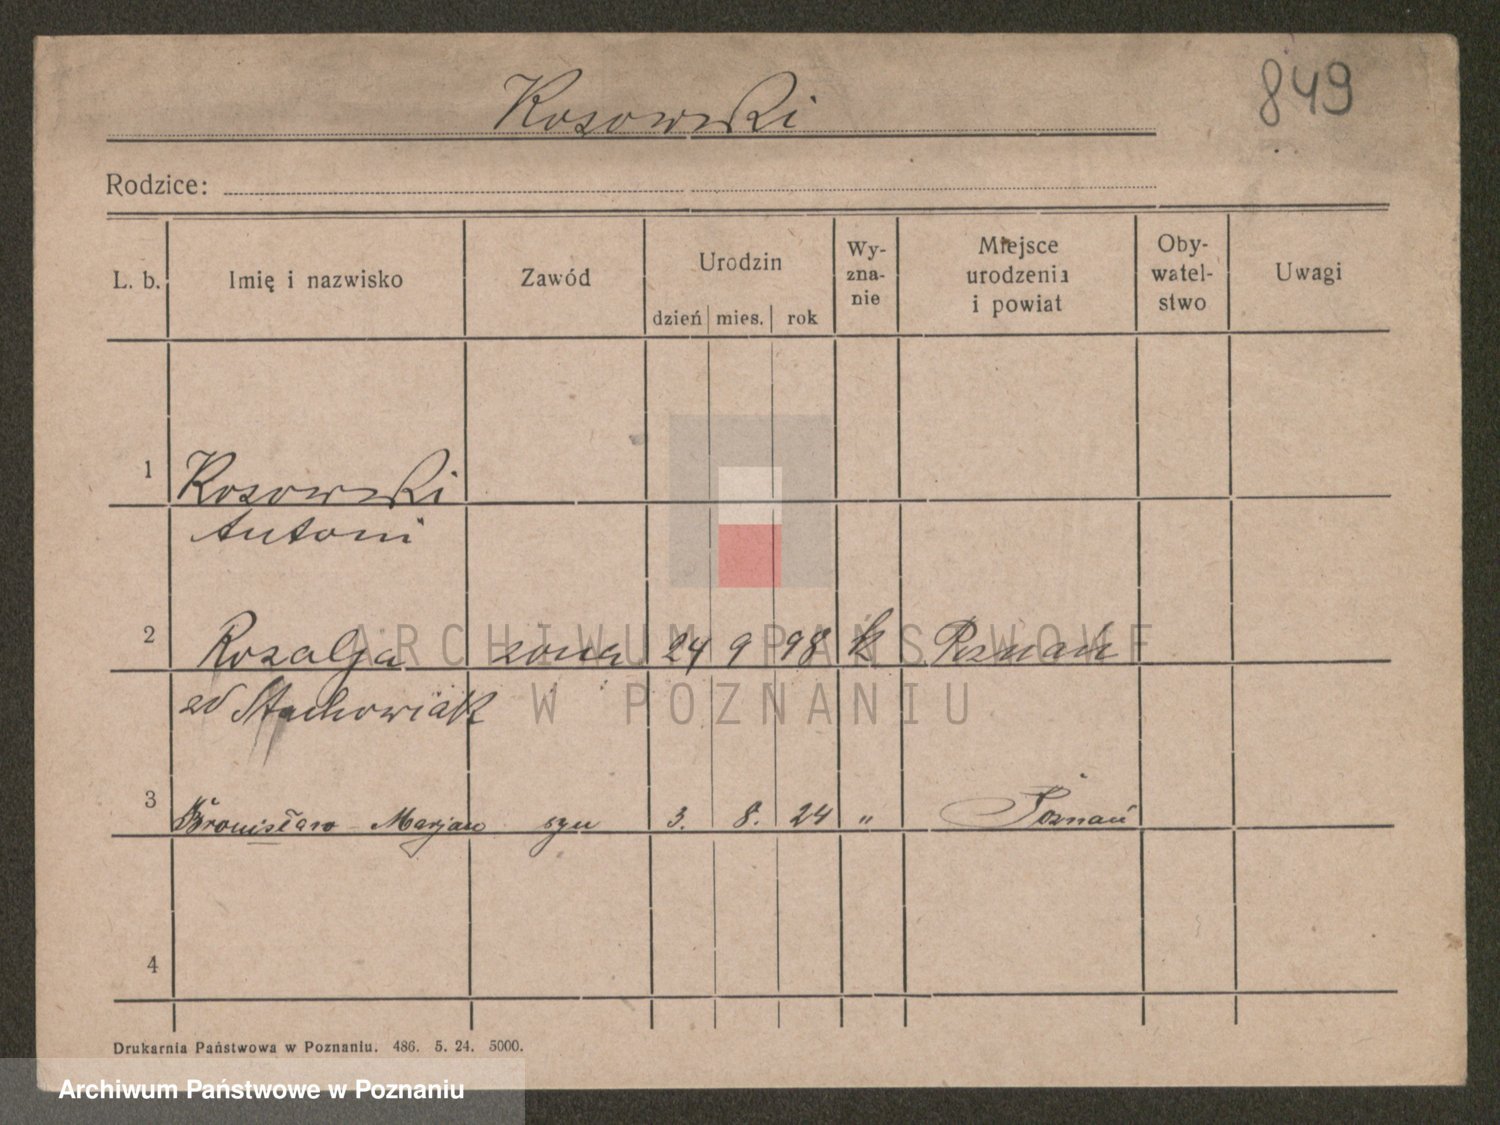 849
Kosowski
Rodzice:
L. b. Imię i nazwisko Zawód Urodzin dzień mies. rok Wy-zna-nie Miejsce urodzenia i powiat Oby-watel-stwo Uwagi
1 Kosowski
Antoni
2 Rozalja żona 24 9 98 k Poznań
zd Stachowiak
3 Bronisław Marjan syn 3. 8. 24 " Poznań
4
Drukarnia Państwowa w Poznaniu. 486. 5. 24. 5000.
ARCHIWUM PAŃSTWOWE
W POZNANIU
Archiwum Państwowe w Poznaniu